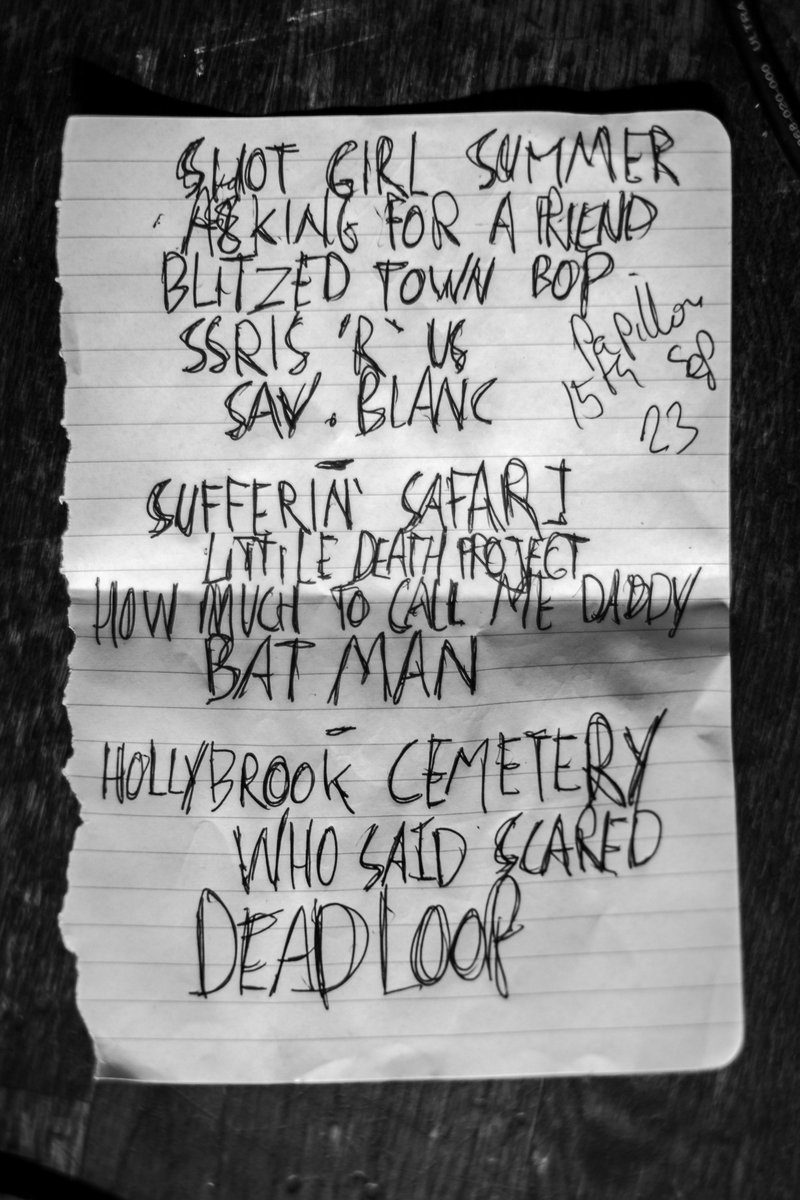 SHOT GIRL SUMMER
ASKING FOR A FRIEND
BLITZED TOWN BOP
SSRIS 'R' US
SAV. BLANC
Papillon
15th Sep
23
-
SUFFERIN' SAFARI
LITTLE DEATH PROJECT
HOW MUCH TO CALL ME DADDY
BAT MAN
-
HOLLYBROOK CEMETERY
WHO SAID SCARED
DEADLOOP
ULTRA